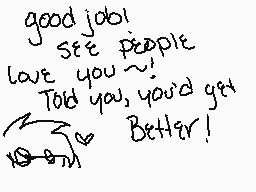 good job!
see people
love you ~!
Told you, you'd get
Better!